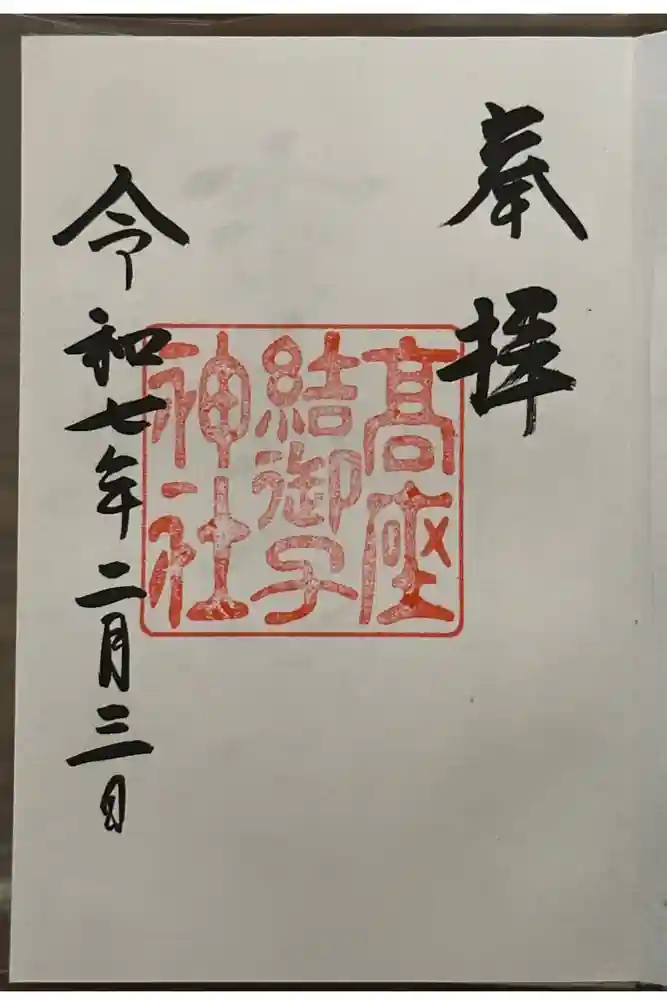 奉拝
髙座
結御子
神社
令和七年二月三日